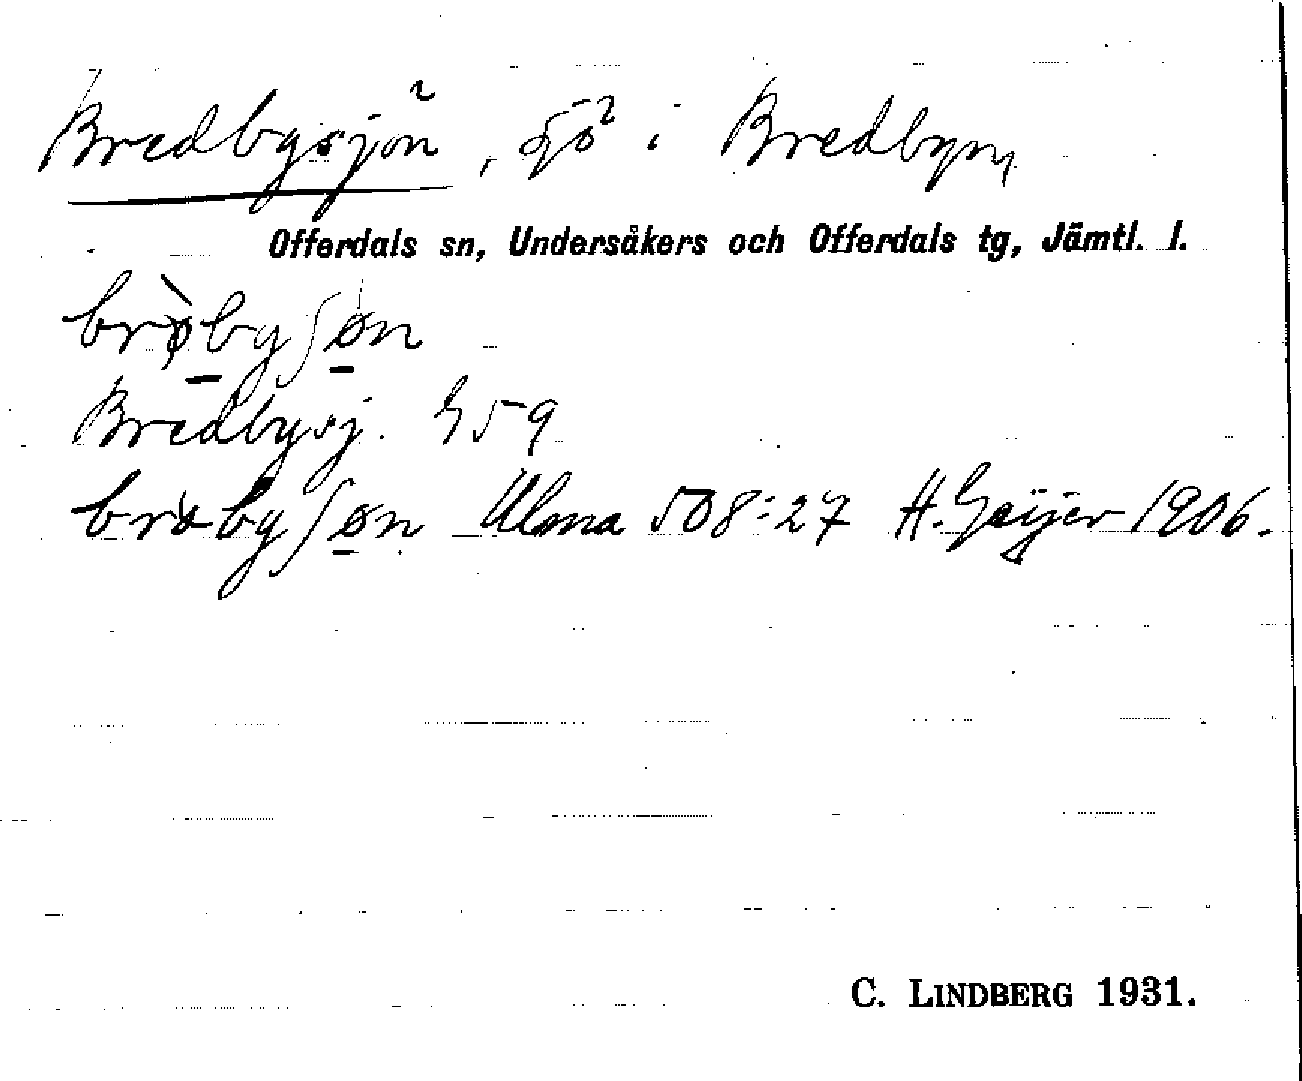 Bredbysjön, sjö i Bredbyn
Offerdals sn, Undersåkers och Offerdals tg, Jämtl. l.
brò̱byʃø̱n
Bredbysj. G59
bròbyʃø̱n Ulma 508:27 H. Geijer 1906.
C. LINDBERG 1931.